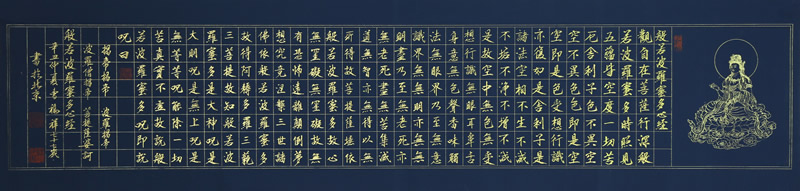 般若波羅蜜多心經
觀自在菩薩行深般
若波羅蜜多時照見
五蘊皆空度一切苦
厄舍利子色不異空
空不異色色即是空
空即是色受想行識
亦復如是舍利子是
諸法空相不生不滅
不垢不淨不增不減
是故空中無色無受
想行識無眼耳鼻舌
身意無色聲香味觸
法無眼界乃至無意
識界無無明亦無無
明盡乃至無老死亦
無老死盡無苦集滅
道無智亦無得以無
所得故菩提薩埵依
般若波羅蜜多故心
無罣礙無罣礙故無
有恐怖遠離顛倒夢
想究竟涅槃三世諸
佛依般若波羅蜜多
故得阿耨多羅三藐
三菩提故知般若波
羅蜜多是大神呪是
大明呪是無上呪是
無等等呪能除一切
苦真實不虛故說般
若波羅蜜多呪即說
呪曰
揭帝揭帝 波羅揭帝
波羅僧揭帝 菩提薩婆訶
般若波羅蜜多心經
辛丑仲夏 福祥七十七歲
書於北京